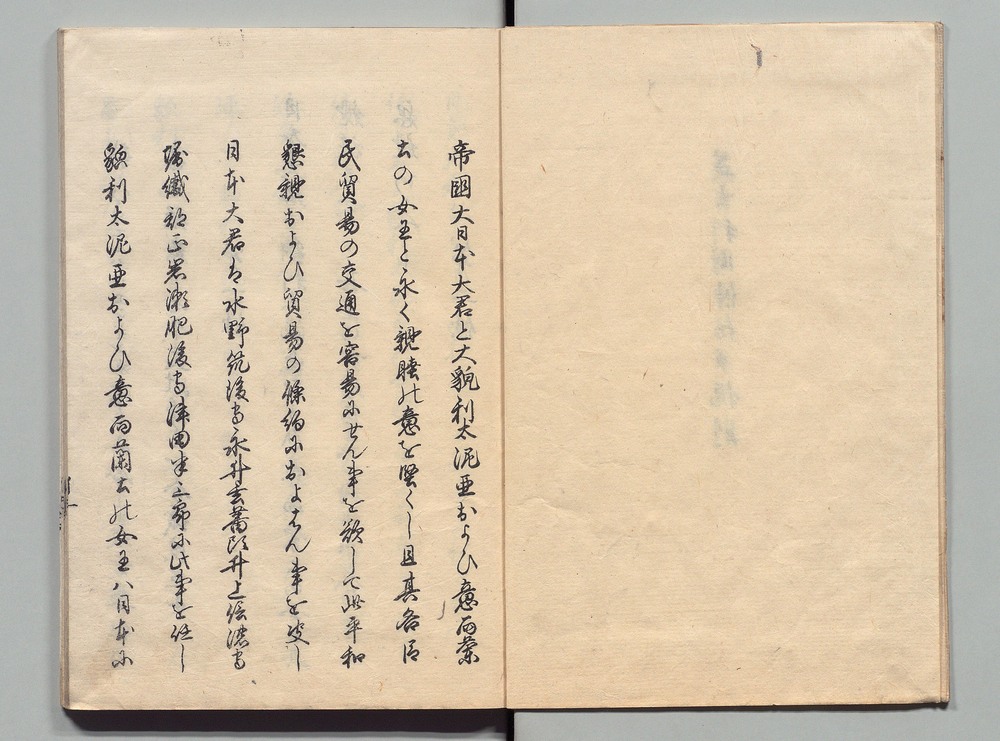 帝國大日本大君と大貌利太泥亜およひ意而蘭
土の女王と永く親睦の意を堅くし且其各臣
民貿易の交通を容易にせん事を欲して此平和
懇親およひ貿易の條約におよはん事を決し
日本大君は水野筑後守永井玄蕃頭井上信濃守
堀織部正岩瀬肥後守津田半三郎に此事を任し
貌利太泥亜およひ意而蘭土の女王ハ日本に